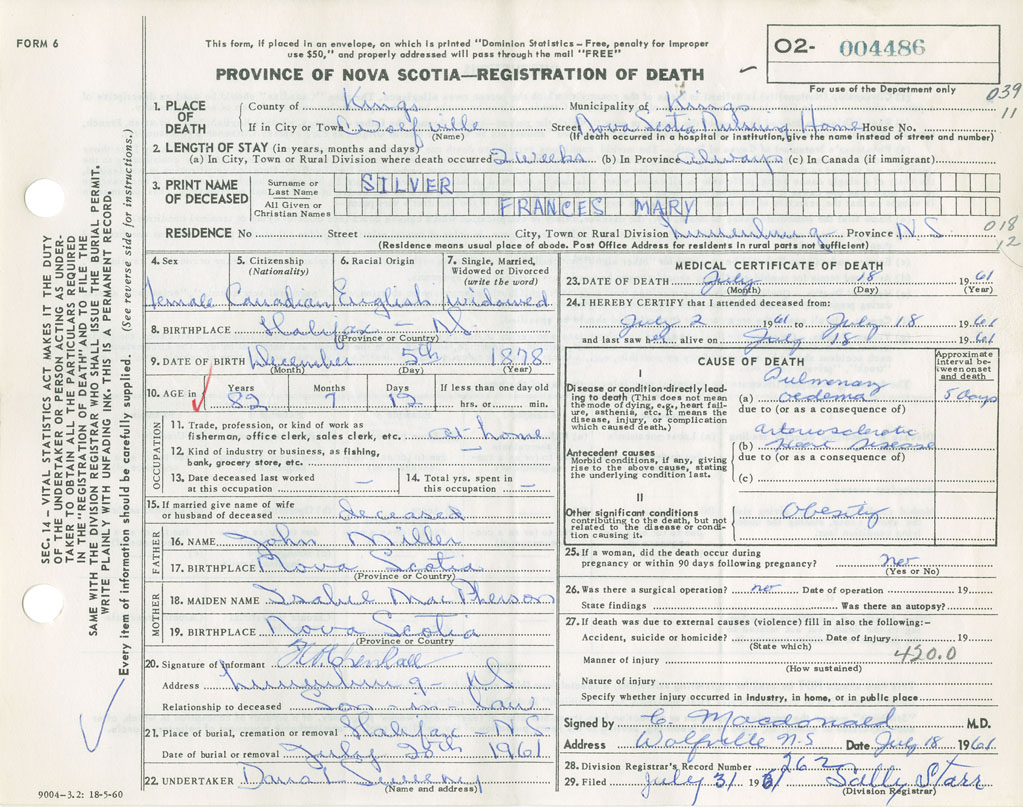 FORM 6
This form, if placed in an envelope, on which is printed "Dominion Statistics – Free, penalty for improper
use $50," and properly addressed will pass through the mail "FREE"
PROVINCE OF NOVA SCOTIA—REGISTRATION OF DEATH
02- 004486
For use of the Department only
039
11
1. PLACE OF DEATH
County of Kings Municipality of Kings
If in City or Town Wolfville Street Nova Scotia Nursing Home House No.
(Name) (If death occurred in a hospital or institution, give the name instead of street and number)
2. LENGTH OF STAY (in years, months and days)
(a) In City, Town or Rural Division where death occurred 2 weeks (b) In Province always (c) In Canada (if immigrant)
3. PRINT NAME OF DECEASED
Surname or Last Name SILVER
All Given or Christian Names FRANCES MARY
RESIDENCE No Street City, Town or Rural Division Lunenburg Province N.S
(Residence means usual place of abode. Post Office Address for residents in rural parts not sufficient)
018
12
4. Sex
female
5. Citizenship (Nationality)
Canadian
6. Racial Origin
English
7. Single, Married, Widowed or Divorced (write the word)
widowed
8. BIRTHPLACE Halifax - NS
(Province or Country)
9. DATE OF BIRTH December 5th 1878
(Month) (Day) (Year)
10. AGE in Years Months Days If less than one day old
82 7 12 hrs. or min.
OCCUPATION
11. Trade, profession, or kind of work as
fisherman, office clerk, sales clerk, etc. at home
12. Kind of industry or business, as fishing,
bank, grocery store, etc. —
13. Date deceased last worked at this occupation —
14. Total yrs. spent in this occupation —
15. If married give name of wife
or husband of deceased deceased
FATHER
16. NAME John Miller
17. BIRTHPLACE Nova Scotia
(Province or Country)
MOTHER
18. MAIDEN NAME Isabel MacPherson
19. BIRTHPLACE Nova Scotia
(Province or Country)
20. Signature of Informant
Address Lunenburg - NS
Relationship to deceased Son - in - law
21. Place of burial, cremation or removal Halifax - N.S
Date of burial or removal July 20th 1961
22. UNDERTAKER
(Name and address)
9004-3.2: 18-5-60
MEDICAL CERTIFICATE OF DEATH
23. DATE OF DEATH July 18 1961
(Month) (Day) (Year)
24. I HEREBY CERTIFY that I attended deceased from:
July 2 1961 to July 18 1961
and last saw her alive on July 18 1961
CAUSE OF DEATH
Approximate interval between onset and death
I
Disease or condition directly leading to death (This does not mean the mode of dying, e.g., heart failure, asthenia, etc. It means the disease, injury, or complication which caused death.)
(a) Pulmonary oedema 5 days
due to (or as a consequence of)
Antecedent causes
Morbid conditions, if any, giving rise to the above cause, stating the underlying condition last.
(b) arteriosclerotic Heart Disease
due to (or as a consequence of)
(c)
II
Other significant conditions
contributing to the death, but not related to the disease or condition causing it.
Obesity
25. If a woman, did the death occur during
pregnancy or within 90 days following pregnancy? no
(Yes or No)
26. Was there a surgical operation? no Date of operation 19
State findings Was there an autopsy?
27. If death was due to external causes (violence) fill in also the following:-
Accident, suicide or homicide? Date of injury 19
(State which)
420.0
Manner of injury
(How sustained)
Nature of injury
Specify whether injury occurred in industry, in home, or in public place
Signed by C. Macdonald M.D.
Address Wolfville N-S Date July 18 1961
28. Division Registrar's Record Number 262
29. Filed July 31 1961 Sally Starr
(Division Registrar)
SEC. 14 – VITAL STATISTICS ACT MAKES IT THE DUTY
OF THE UNDERTAKER OR PERSON ACTING AS UNDER-
TAKER TO OBTAIN ALL THE PARTICULARS REQUIRED
IN THE "REGISTRATION OF DEATH" AND TO FILE THE
SAME WITH THE DIVISION REGISTRAR WHO SHALL ISSUE THE BURIAL PERMIT.
WRITE PLAINLY WITH UNFADING INK. THIS IS A PERMANENT RECORD.
Every item of information should be carefully supplied. (See reverse side for instructions.)